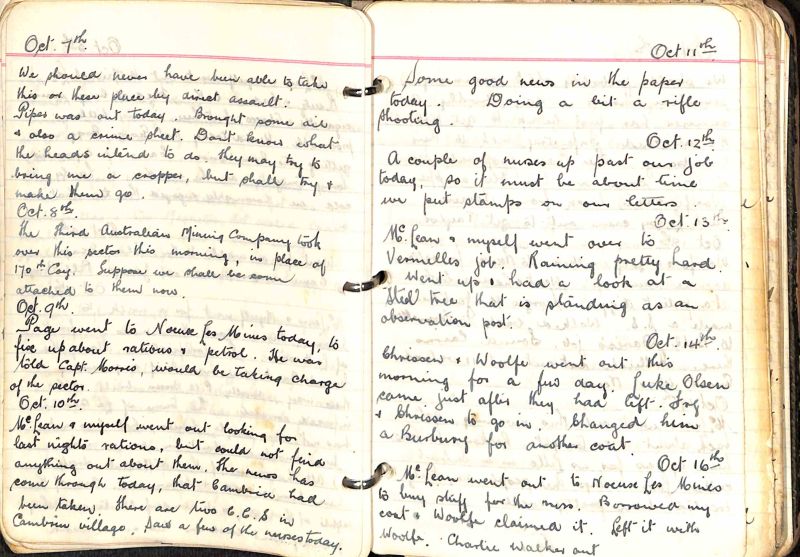 Oct. 7th.
We should never have been able to take
this or these place by direct assault.
Piper was out today. Brought some aid
& also a crime sheet. Dont know what
the heads intend to do. They may try to
bring me a cropper, but shall try &
make them go.
Oct. 8th.
The Third Australian Mining Company took
over this sector this morning, in place of
170th Coy. Suppose we shall become
attached to them now.
Oct. 9th.
Page went to Noeuse Les Mines today, to
fix up about rations & petrol. He was
told Capt. Morris, would be taking charge
of the sector.
Oct. 10th.
McLean & myself went out looking for
last nights rations, but could not find
anything out about them. The news has
come through today, that Cambrie had
been taken. There are two C.C.S in
Cambrin village. Saw a few of the nurses today.
Oct 11th.
Some good news in the paper
today. Doing a bit a rifle
shooting.
Oct. 12th
A couple of nurses up past our job
today, so it must be about time
we put stamps on our letters.
Oct. 13th.
McLean & myself went over to
Vermelles job. Raining pretty hard.
Went up & had a look at a
steel tree that is standing as an
observation post.
Oct. 14th.
Chrissen & Woolfe went out this
morning for a few day. Luke Olsen
came just after they had left.
& Chrissen to go in. Changed him
a Burbury for another coat.
Oct 16th
McLean went out to Noeuse Les Mines
to buy stuff for the mess. Borrowed my
coat & Woolfe claimed it. Left it with
Woolfe. Charlie Walker out